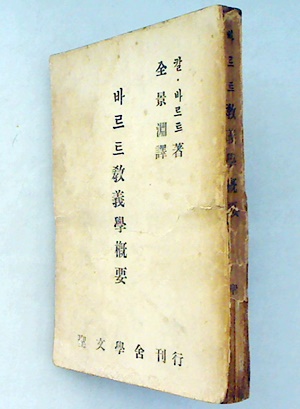 칼·바르트 著
全景淵 譯
바르트敎義學槪要
聖文學舍刊行
바르트敎義學槪要